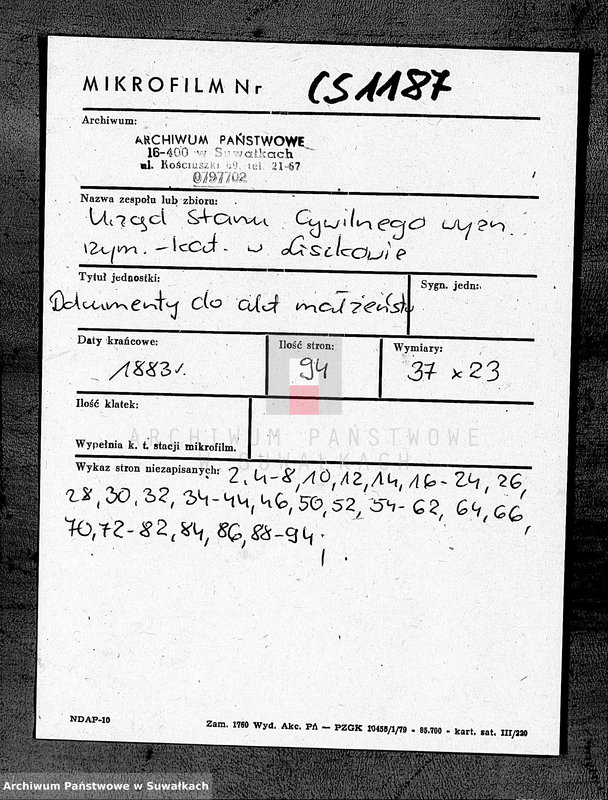 MIKROFILM Nr CS1187
Archiwum:
ARCHIWUM PAŃSTWOWE
16-400 w Suwałkach
ul. Kościuszki 69, tel. 21-67
0797702
Nazwa zespołu lub zbioru:
Urząd Stanu Cywilnego wyzn.
rzym.-kat. w Liszkowie
Tytuł jednostki:
Sygn. jedn.:
Dokumenty do akt małżeństw
Daty krańcowe:
Ilość stron:
Wymiary:
1883 r.
94
37 x 23
Ilość klatek:
Wypełnia k. t. stacji mikrofilm.
ARCHIWUM PAŃSTWOWE
W SUWAŁKACH
Wykaz stron niezapisanych: 2, 4-8, 10, 12, 14, 16-24, 26,
28, 30, 32, 34-44, 46, 50, 52, 54-62, 64, 66,
70, 72-82, 84, 86, 88-94.
NDAP-10
Zam. 1760 Wyd. Akc. PŃ — PZGK 10458/1/79 - 85.700 - kart. sat. III/220
Archiwum Państwowe w Suwałkach